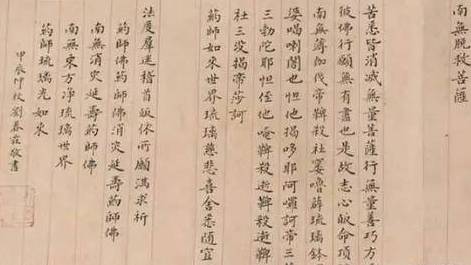 南無脫救菩薩
苦悉皆消滅無量菩薩行無量善巧方
彼佛行願無有盡也是故志心皈命頂
南無簿伽伐帝鞞殺社窶嚕薜琉璃鉢
婆喝喇闍也怛他揭哆耶阿囉訶帝三
三勃陀耶怛侄他唵鞞殺逝鞞殺逝鞞
社三没揭帝莎訶
葯師如來世界琉璃慈悲喜舍悉隨宜
法度羣迷稽首皈依所願滿求祈
葯師佛葯師佛消灾延壽葯師佛
南無消灾延壽葯師佛
南無東方净琉璃世界
葯師琉璃光如來
甲辰仲秋劉敬書